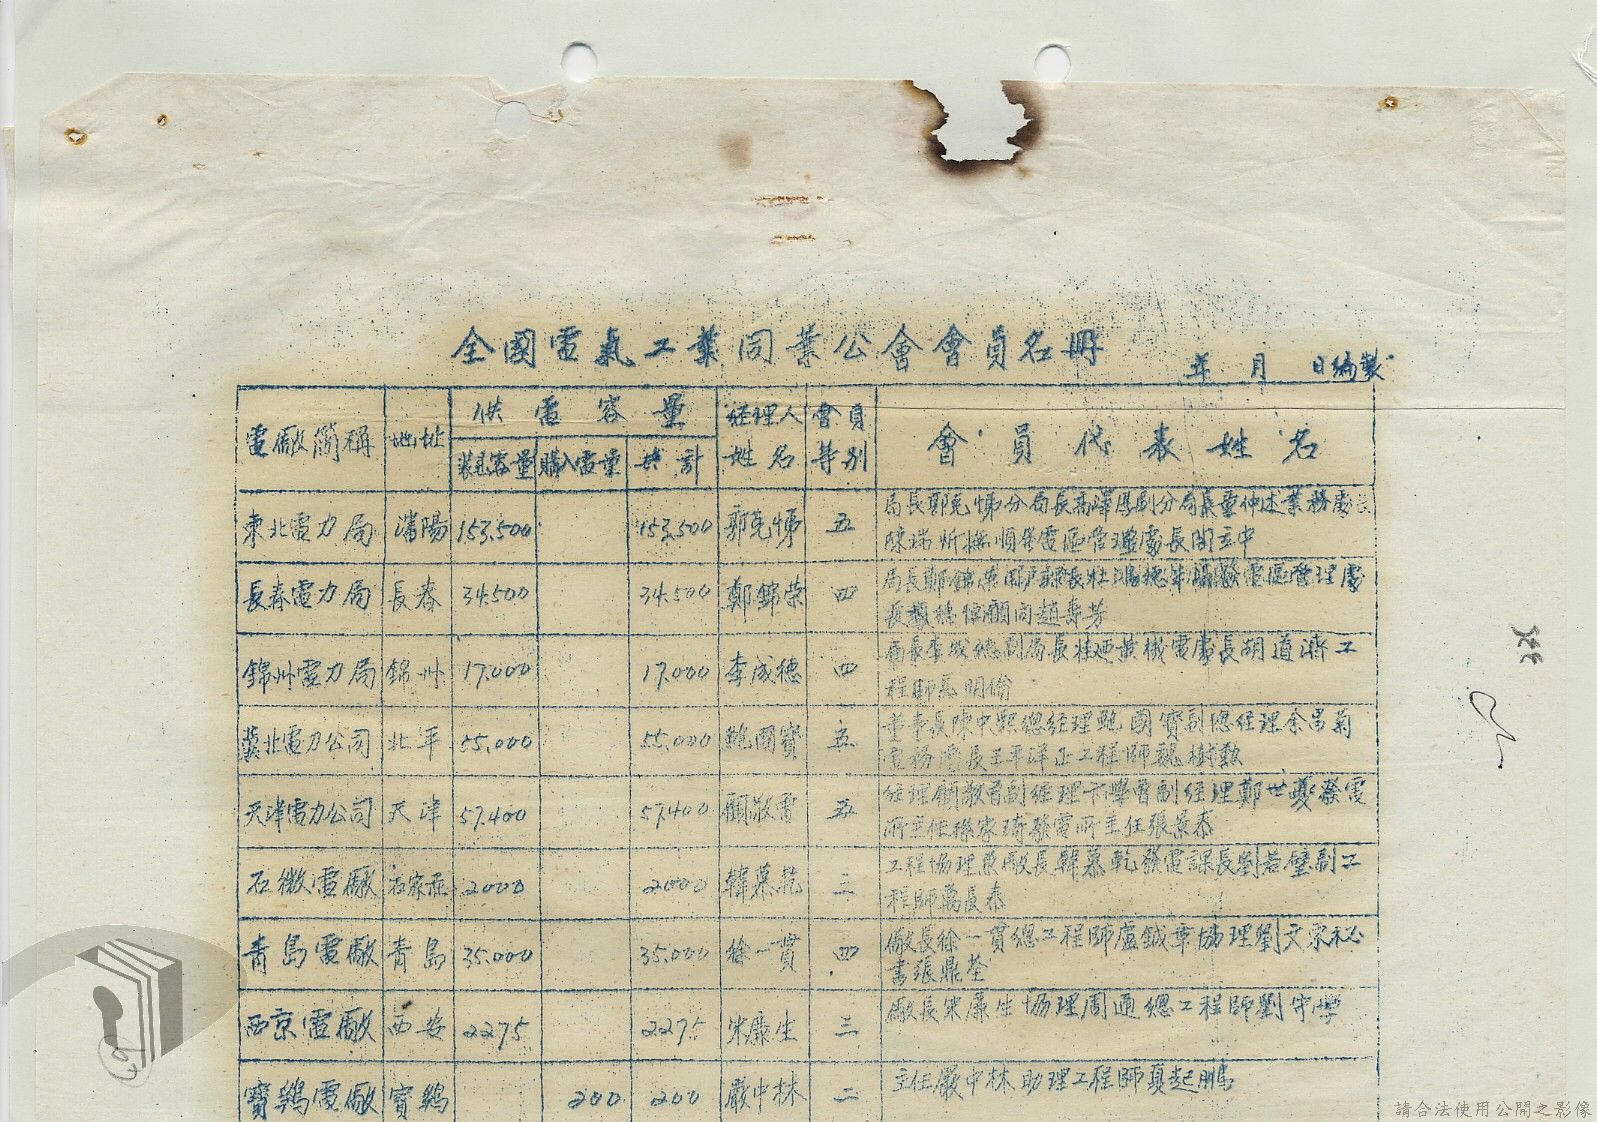 全國電氣工業同業公會會員名冊
年 月 日編製
電廠簡稱 地址 供電容量 經理人姓名 會員等別 會員代表姓名
裝見容量 購入電量 共計
東北電力局 瀋陽 153,500 153,500 郭克悌 五 局長郭克悌分局長高澤厚副分局長董仲述業務處長
陳瑞炘撫順發電區管理處長閻立中
長春電力局 長春 34,500 34,500 鄭錦榮 四 局長鄭錦榮用戶課長杜鴻德 發電區管理處
長 顧問趙壽芳
錦州電力局 錦州 17,000 17,000 李成德 四 局長李成德副局長桂迺黃機電處長胡道濟工
程師 明倫
冀北電力公司 北平 55,000 55,000 鮑國寶 五 董事長陳中熙總經理鮑國寶副總經理余昌菊
電務處長王平洋正工程師魏樹勳
天津電力公司 天津 57,400 57,400 顧敬曾 五 經理顧敬曾副經理 學曾副經理鄭世夔發電
所主任孫家琦發電所主任張景泰
石徽電廠 石家莊 2000 2000 韓慕乾 三 工程協理兼廠長韓慕乾發電課長劉若璧副工
程師萬長泰
青島電廠 青島 35,000 35,000 徐一貫 四 廠長徐一貫總工程師盧鉞章協理劉文宋祕
書張鼎荃
西京電廠 西安 2275 2275 宋廉生 三 廠長宋廉生協理周通總工程師劉守學
寶鷄電廠 寶鷄 200 200 嚴中林 二 主任嚴中林助理工程師真起鵬
請合法使用公開之影像